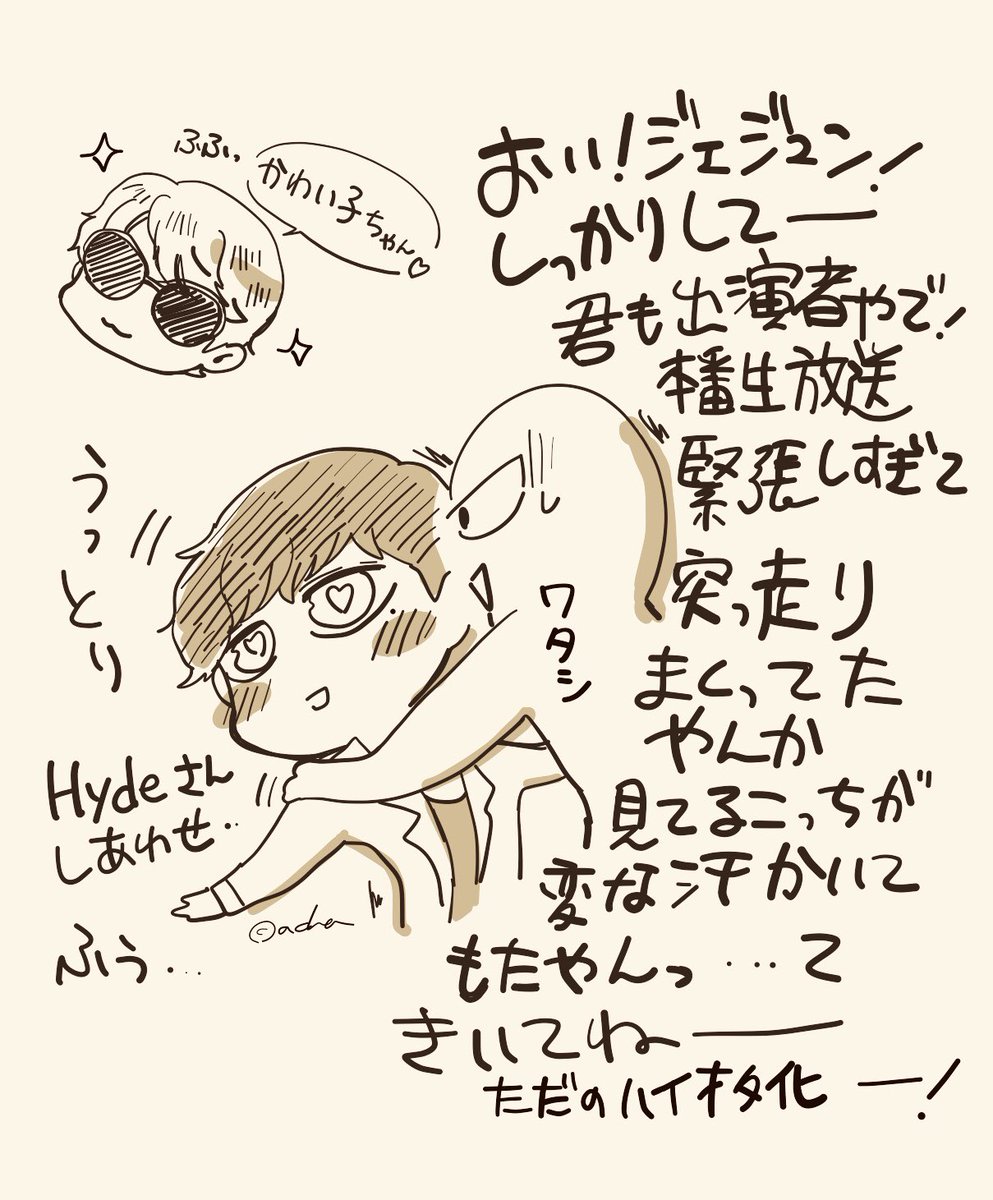 おい!ジェジュン!
しっかりしてー
君も出演者やで!
本番生放送
緊張しすぎて
突っ走り
まくってた
やんか
見てるこっちが
変な汗かいて
もたやんっ…て
きいてねー
ただのハイオタ化ー!
ふふっ
かわい子ちゃん♡
うっとり
ワタシ
Hydeさん
しあわせ‥
ふぅ…
©acha